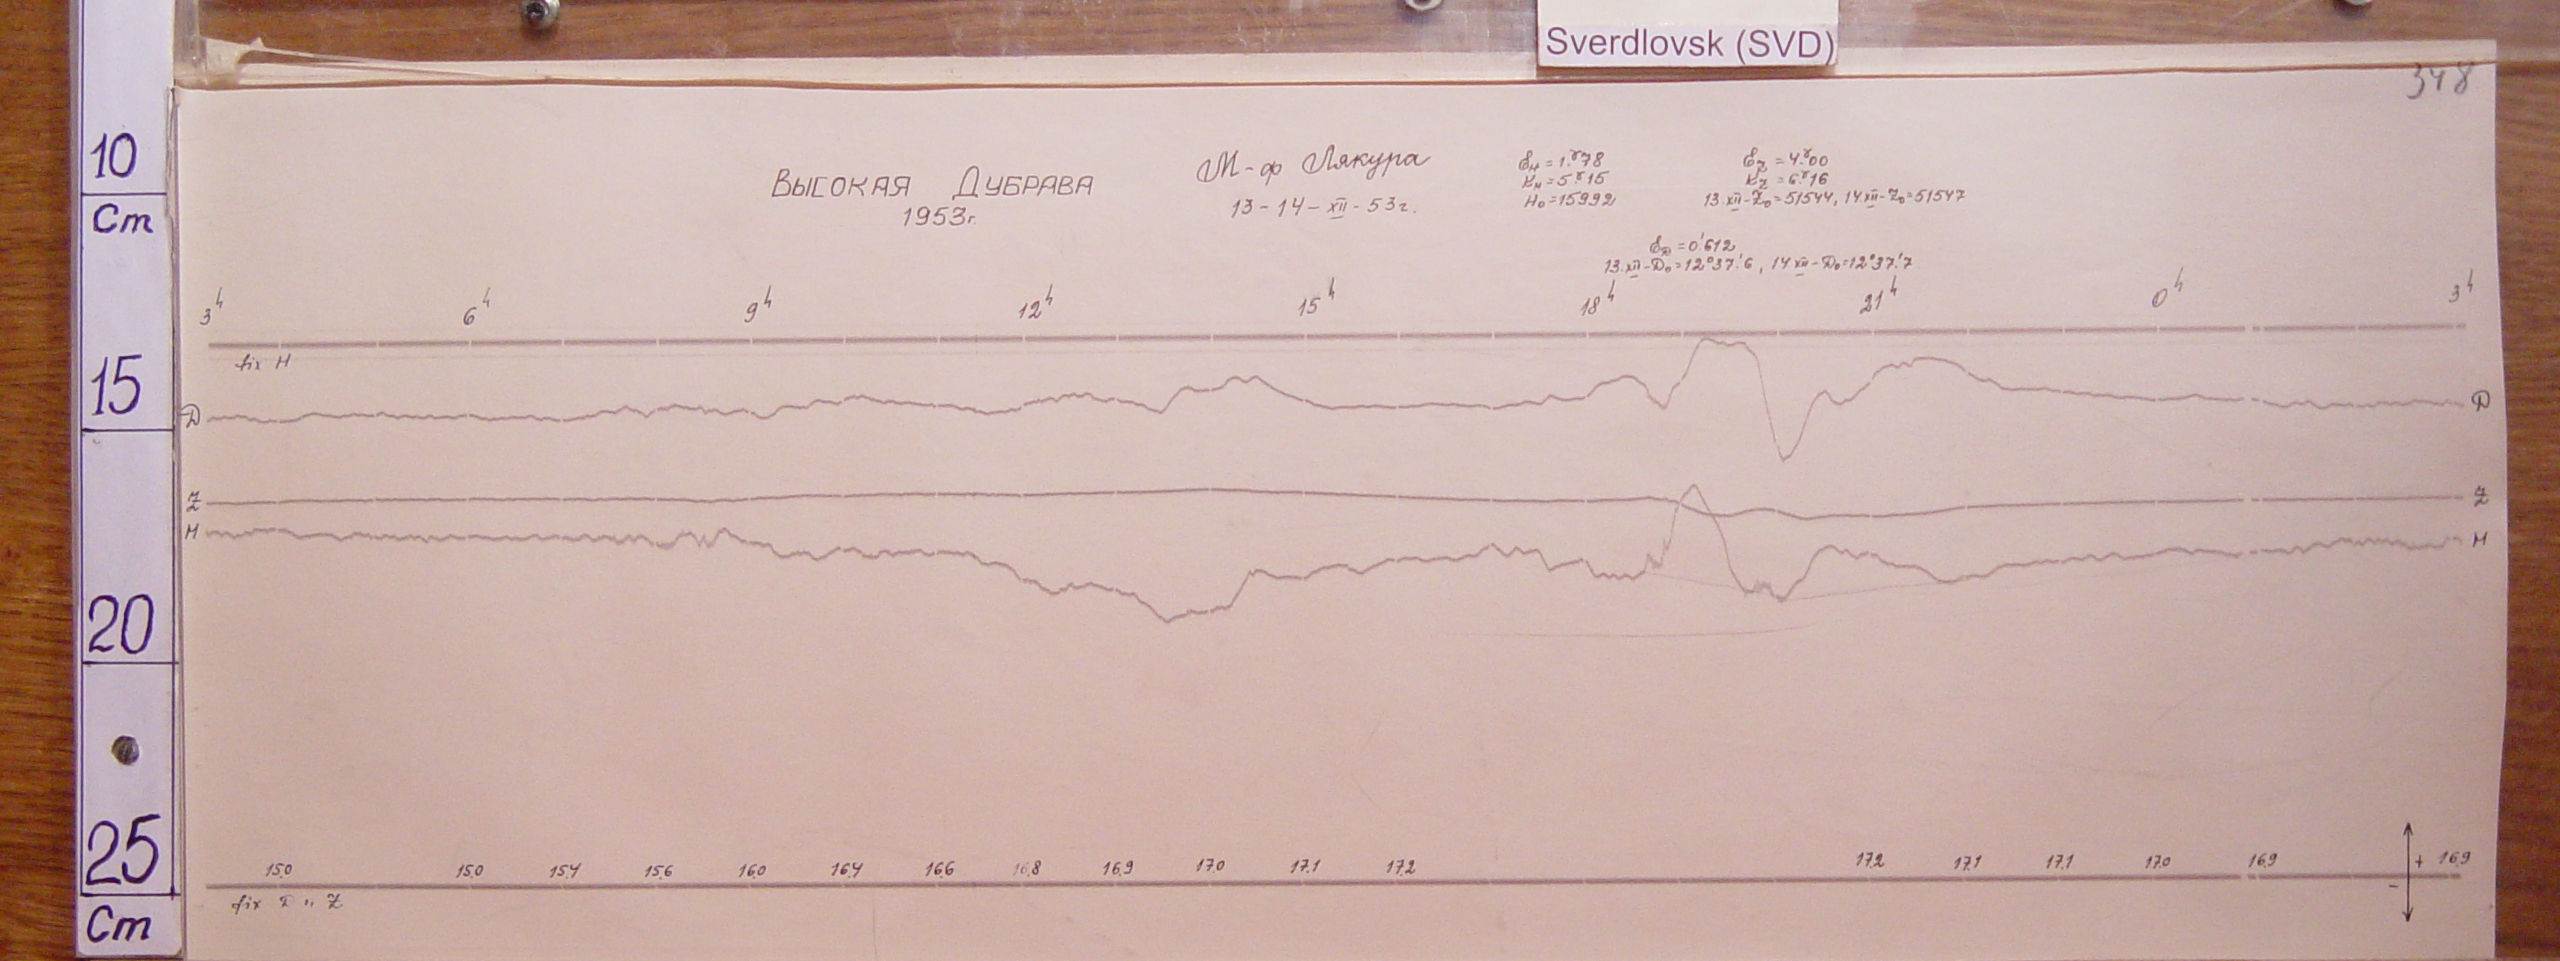 Sverdlovsk (SVD)
348
10
Cm
15
20
25
Cm
Высокая Дубрава
1953г.
М-ф Лякура
13-14-XII-53г.
Ɛн = 1.ᵞ78
Kн = 5.ᵞ15
H₀ = 15992
Ɛz = 4.ᵞ00
Kz = 6.ᵞ16
13.XII-Z₀=51544, 14.XII-Z₀=51547
ƐD = 0.'612
13.XII-D₀=12°37.'6, 14.XII-D₀=12°37.'7
3ʰ 6ʰ 9ʰ 12ʰ 15ʰ 18ʰ 21ʰ 0ʰ 3ʰ
fix H
D D
Z Z
H H
15.0 15.0 15.4 15.6 16.0 16.4 16.6 16.8 16.9 17.0 17.1 17.2 17.2 17.1 17.1 17.0 16.9 + 16.9
-
fix D и Z